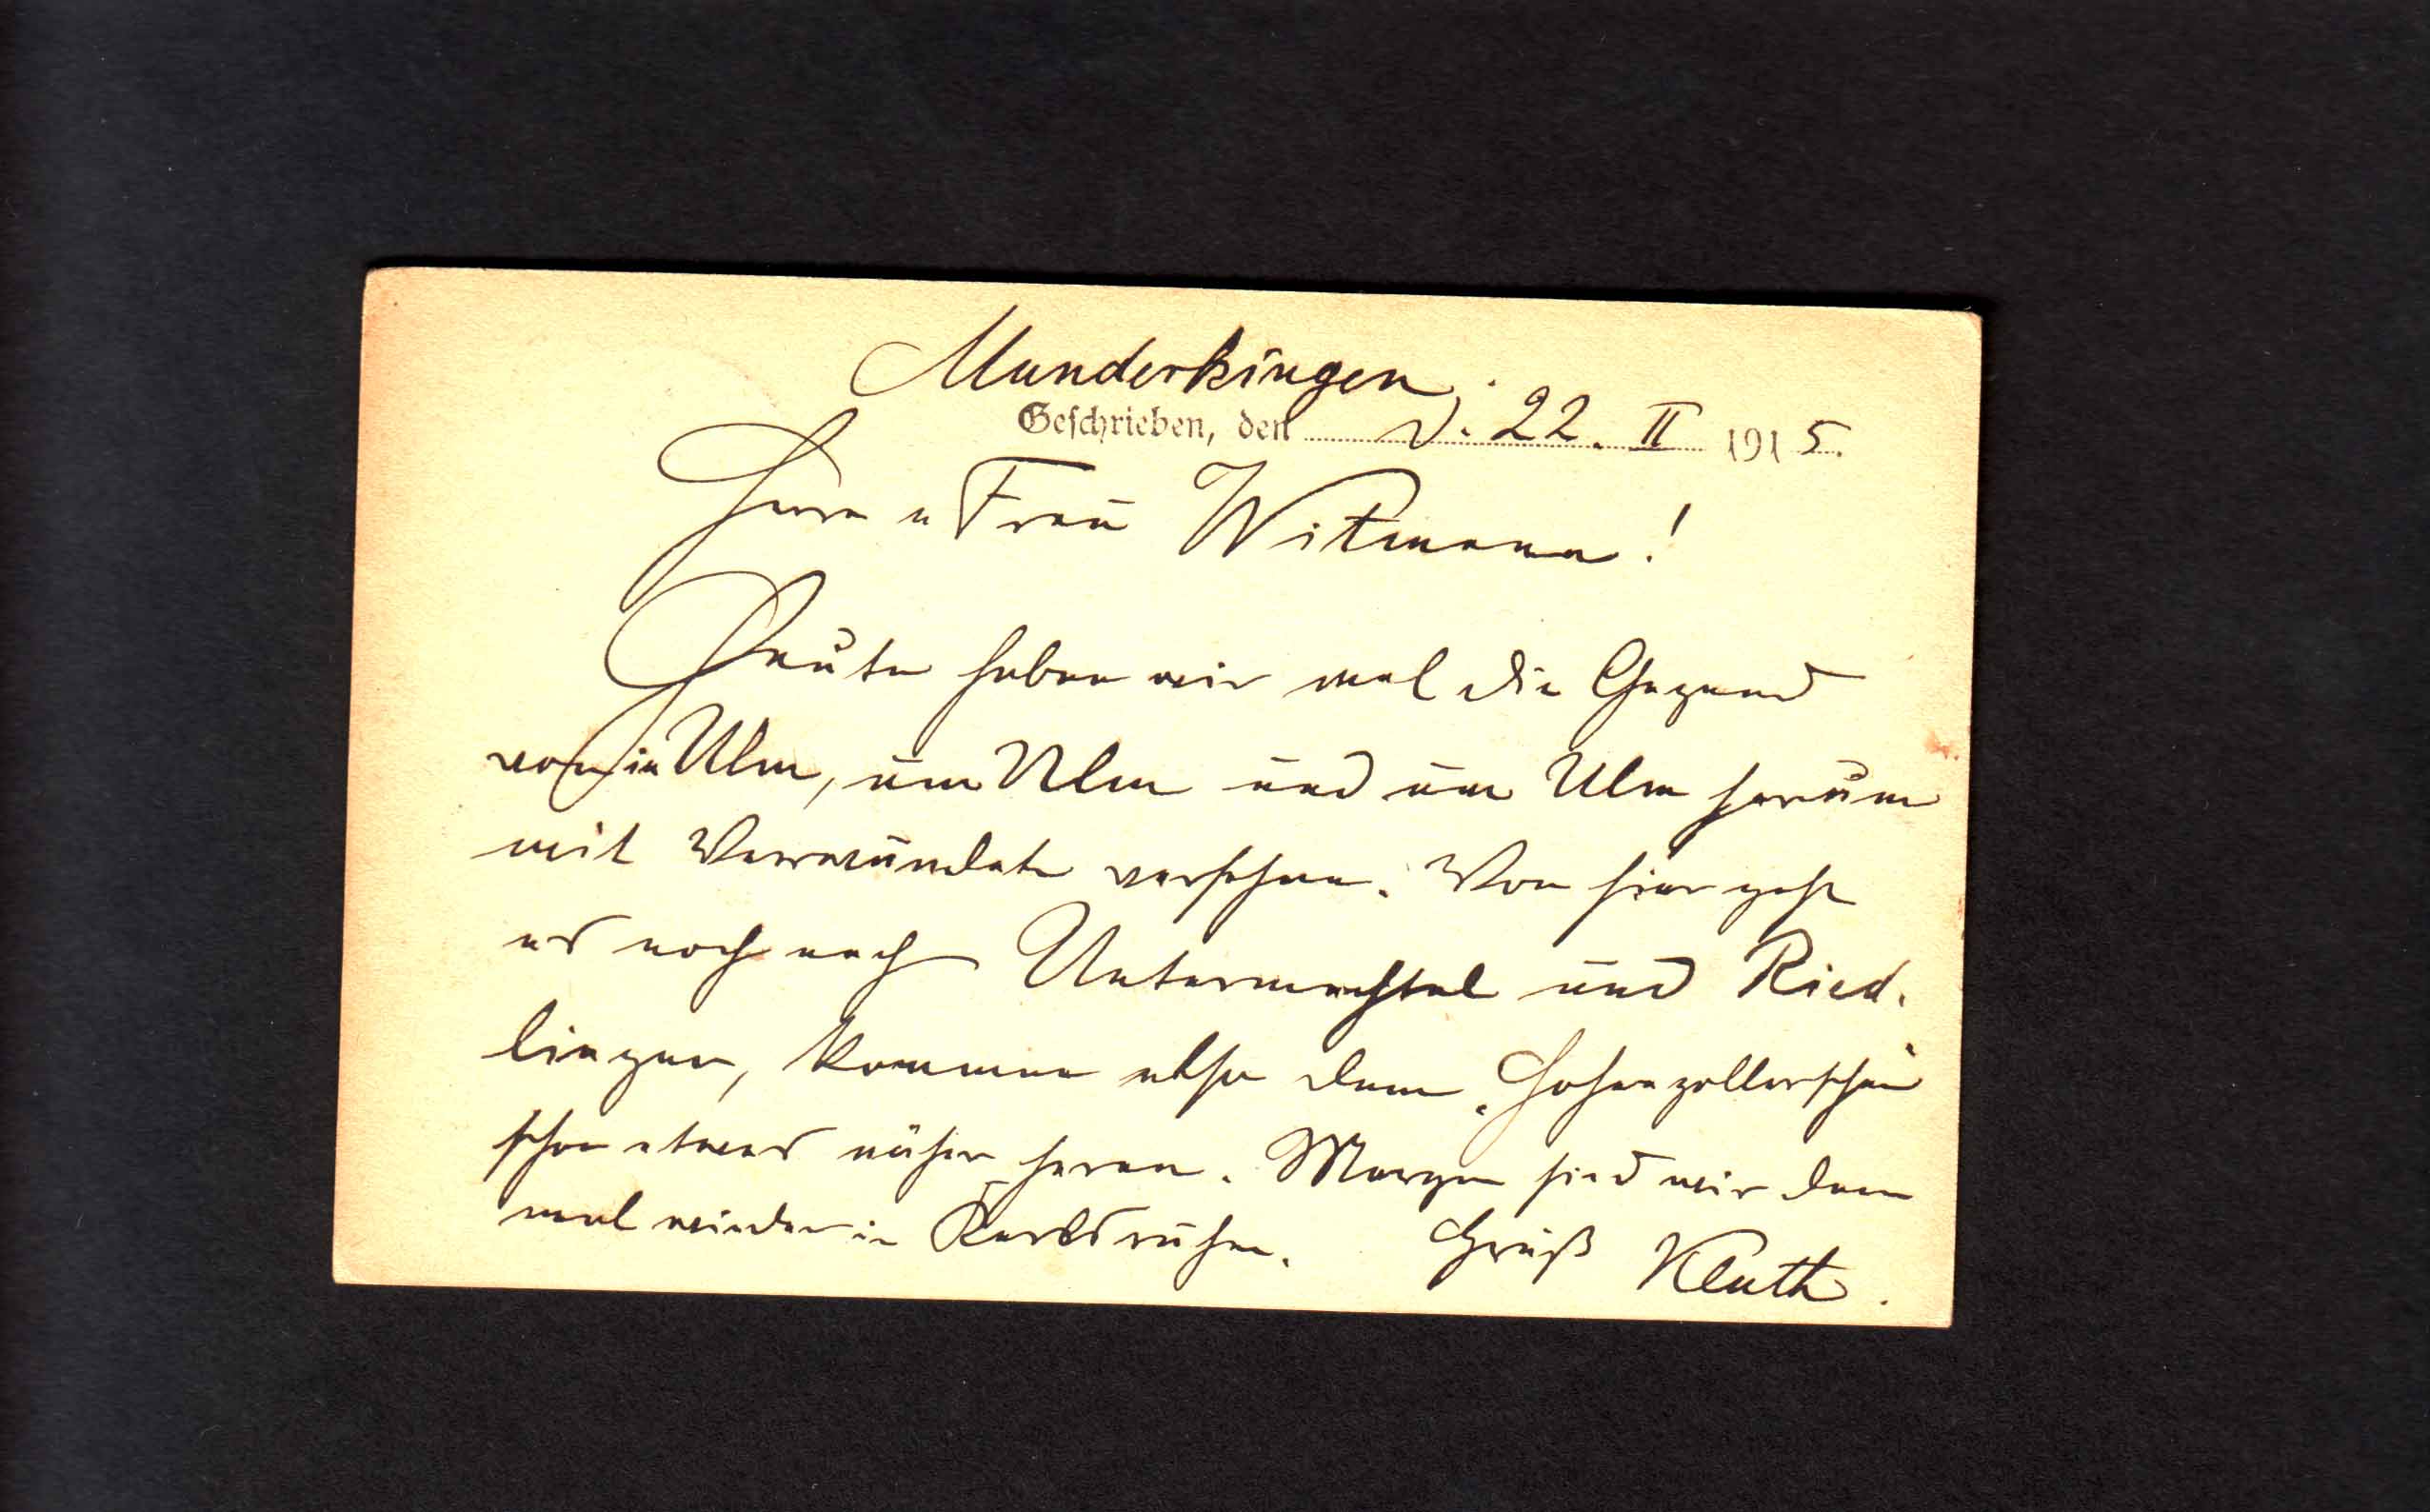 Munderkingen,
Geschrieben, den d. 22. II 1915.
Herrn u Frau Witmann!
Heute haben wir mal die Gegend
von in Ulm, um Ulm und um Ulm herum
mit Verwundete versehen. Von hier geht
es noch nach Untermachtal und Ried-
lingen, kommen also dem
schon etwas näher heran. Morgen sind wir dann
mal wieder in Karlsruhe. Gruß Kluth.